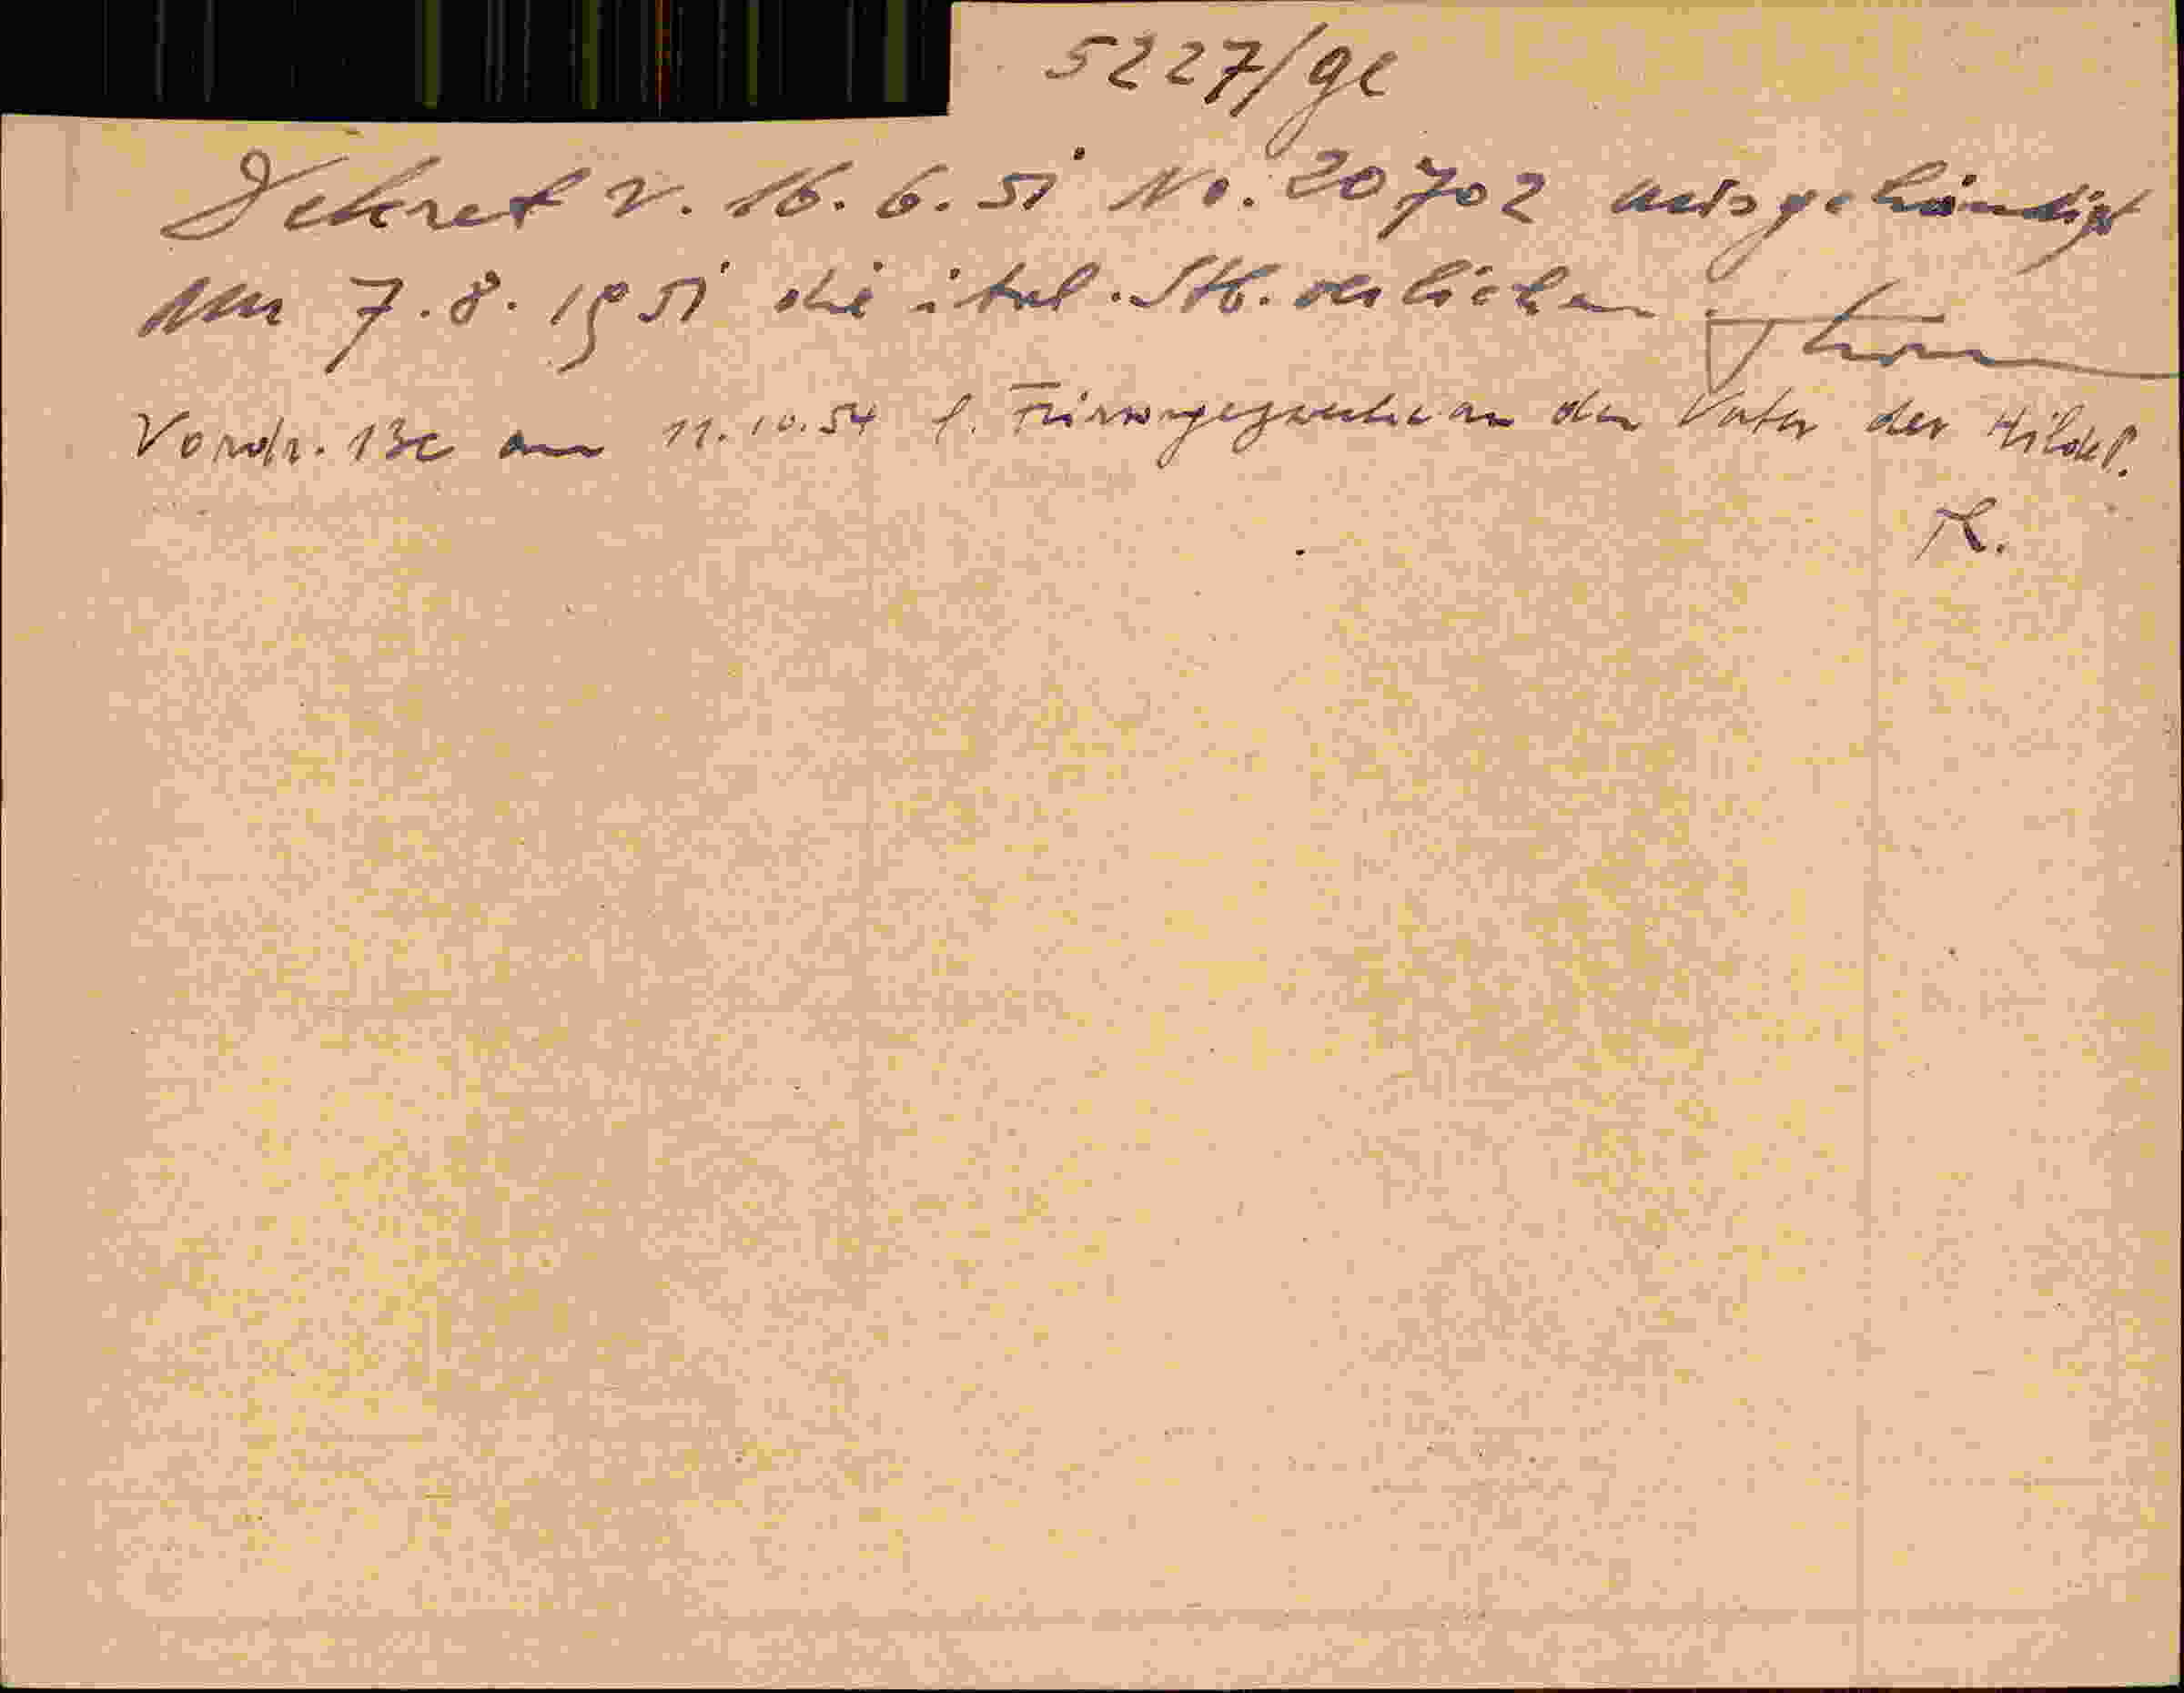 5227/ge
Dekret v. 16.6.51 No. 20702 ausgehändigt
am 7.8.1951 die ital. Stb. verliehen
Vordr. 13c am 11.10.54 f. Fürsorgezwecke an den Vater der Hildeg.
K.